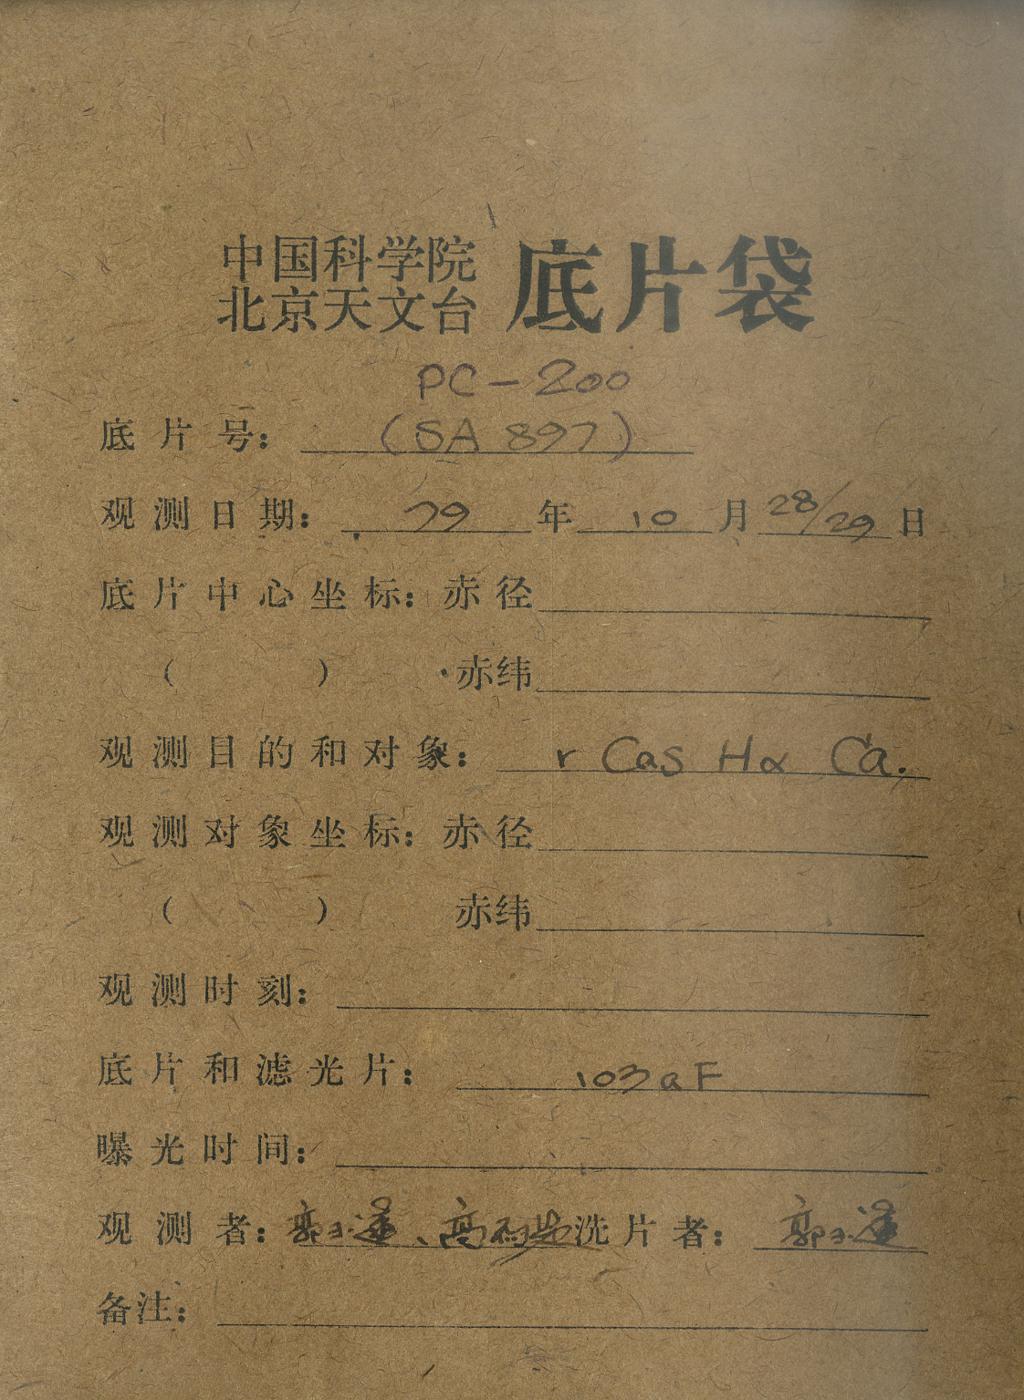 中国科学院
北京天文台 底片袋
PC-200
底片号: (SA 897)
观测日期: 79年10月28/29日
底片中心坐标: 赤径
( ) 赤纬
观测目的和对象: r Cas Hα Ca.
观测对象坐标: 赤径
( ) 赤纬
观测时刻:
底片和滤光片: 103aF
曝光时间:
观测者: 郭 、高 洗片者: 郭
备注: